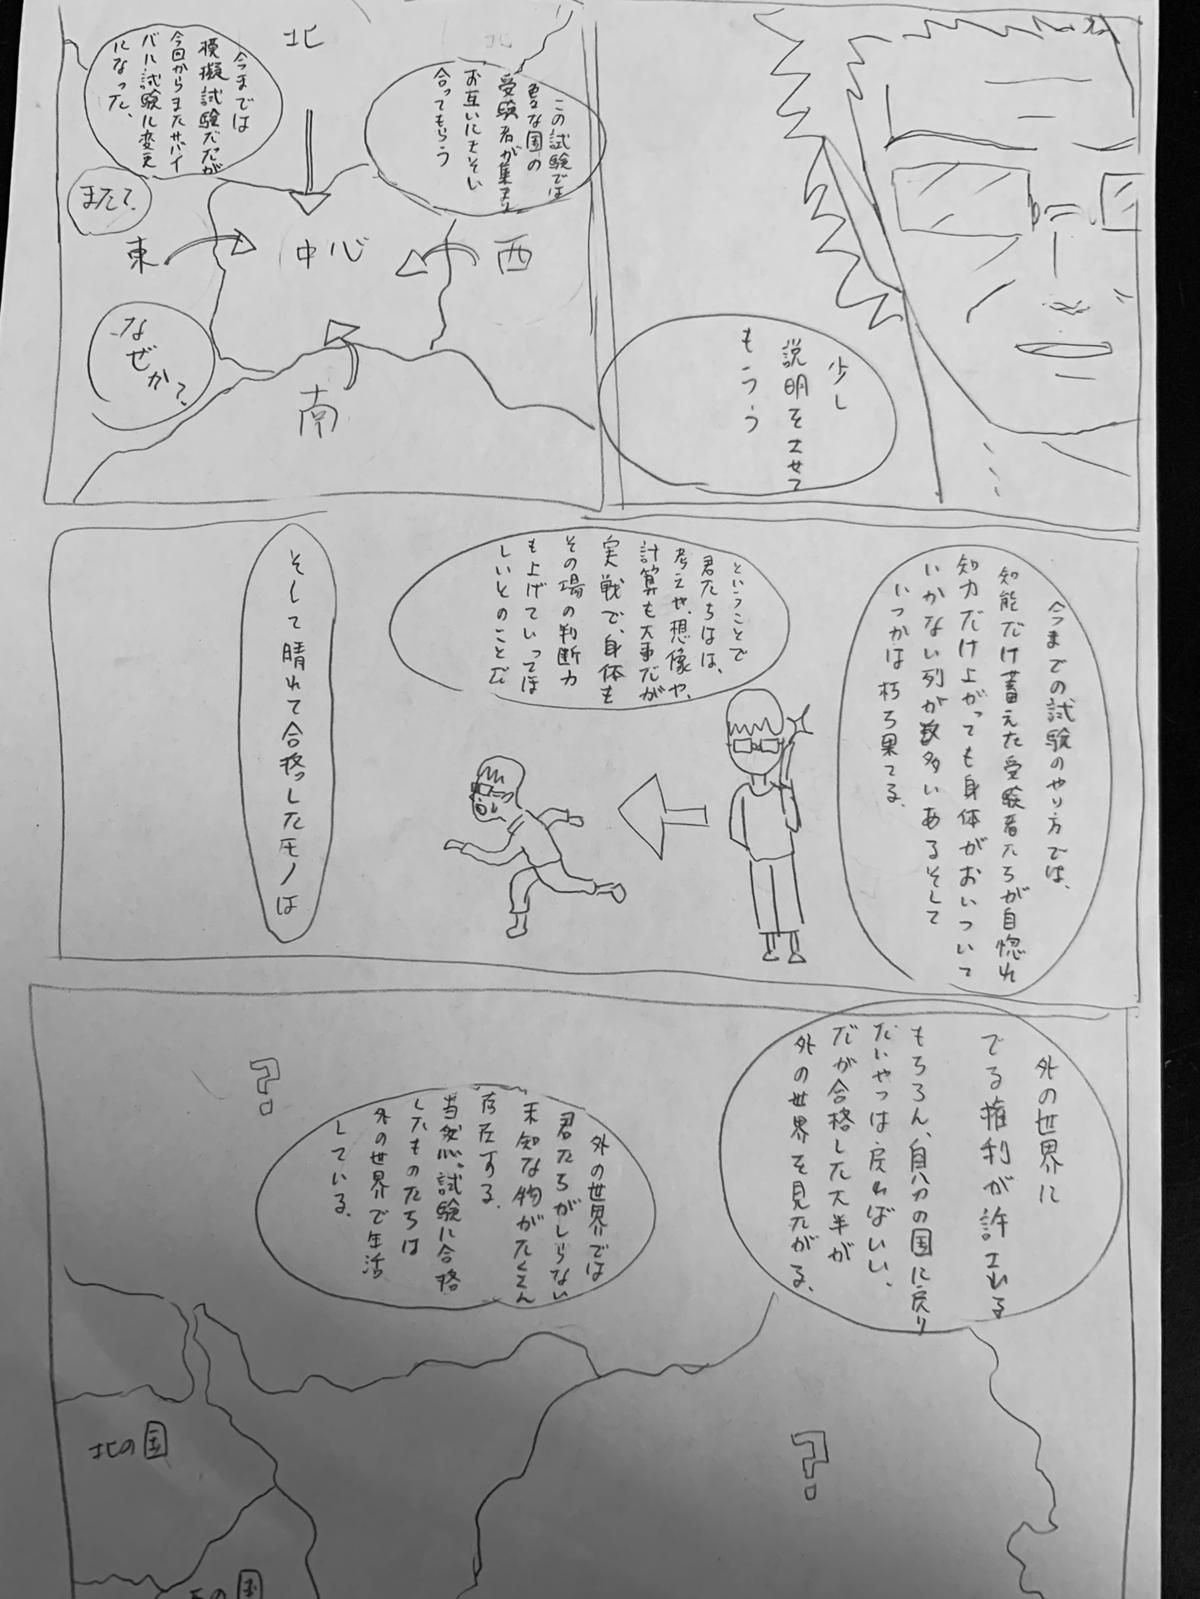 少し
説明をさせて
もらう
この試験では
色々な国の
受験者が集まり
お互いにきそい
合ってもらう
北
北
中心
西
東
南
今までは
模擬試験だたが
今回からまたサバイ
バル試験に変更
になった、
またて、
なぜか?
今までの試験のやり方では、
知能だけ蓄えた受験者たちが自惚れ
知力だけ上がっても身体がおいついて
いかない列が数多いあるそして
いつかは朽ち果てる、
ということで
君たちはは、
考えや、想像や、
計算も大事だが
実戦で、身体も
その場の判断力
も上げていってほ
しいとのことだ
そして晴れて合格したモノは
外の世界に
でる権利が許される
もちろん、自分の国に戻り
たいやつは戻ればいい、
だが合格した大半が
外の世界を見たがる、
外の世界では
君たちがしらない
未知な物がたくさん
存在する、
当然だ。試験に合格
したものたちは
外の世界で生活
している、
?
?
北の国
の国